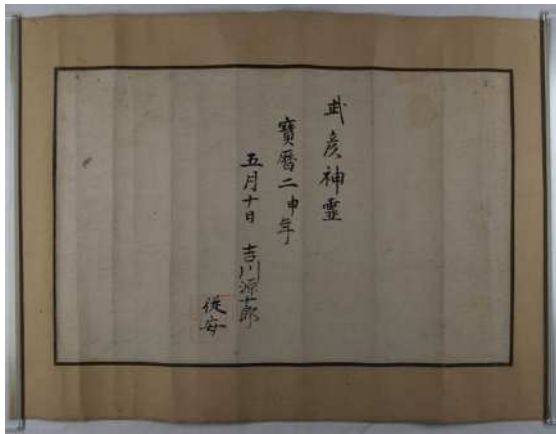 武彦神霊
寶暦二申年
五月十日 吉川源十郎
従安